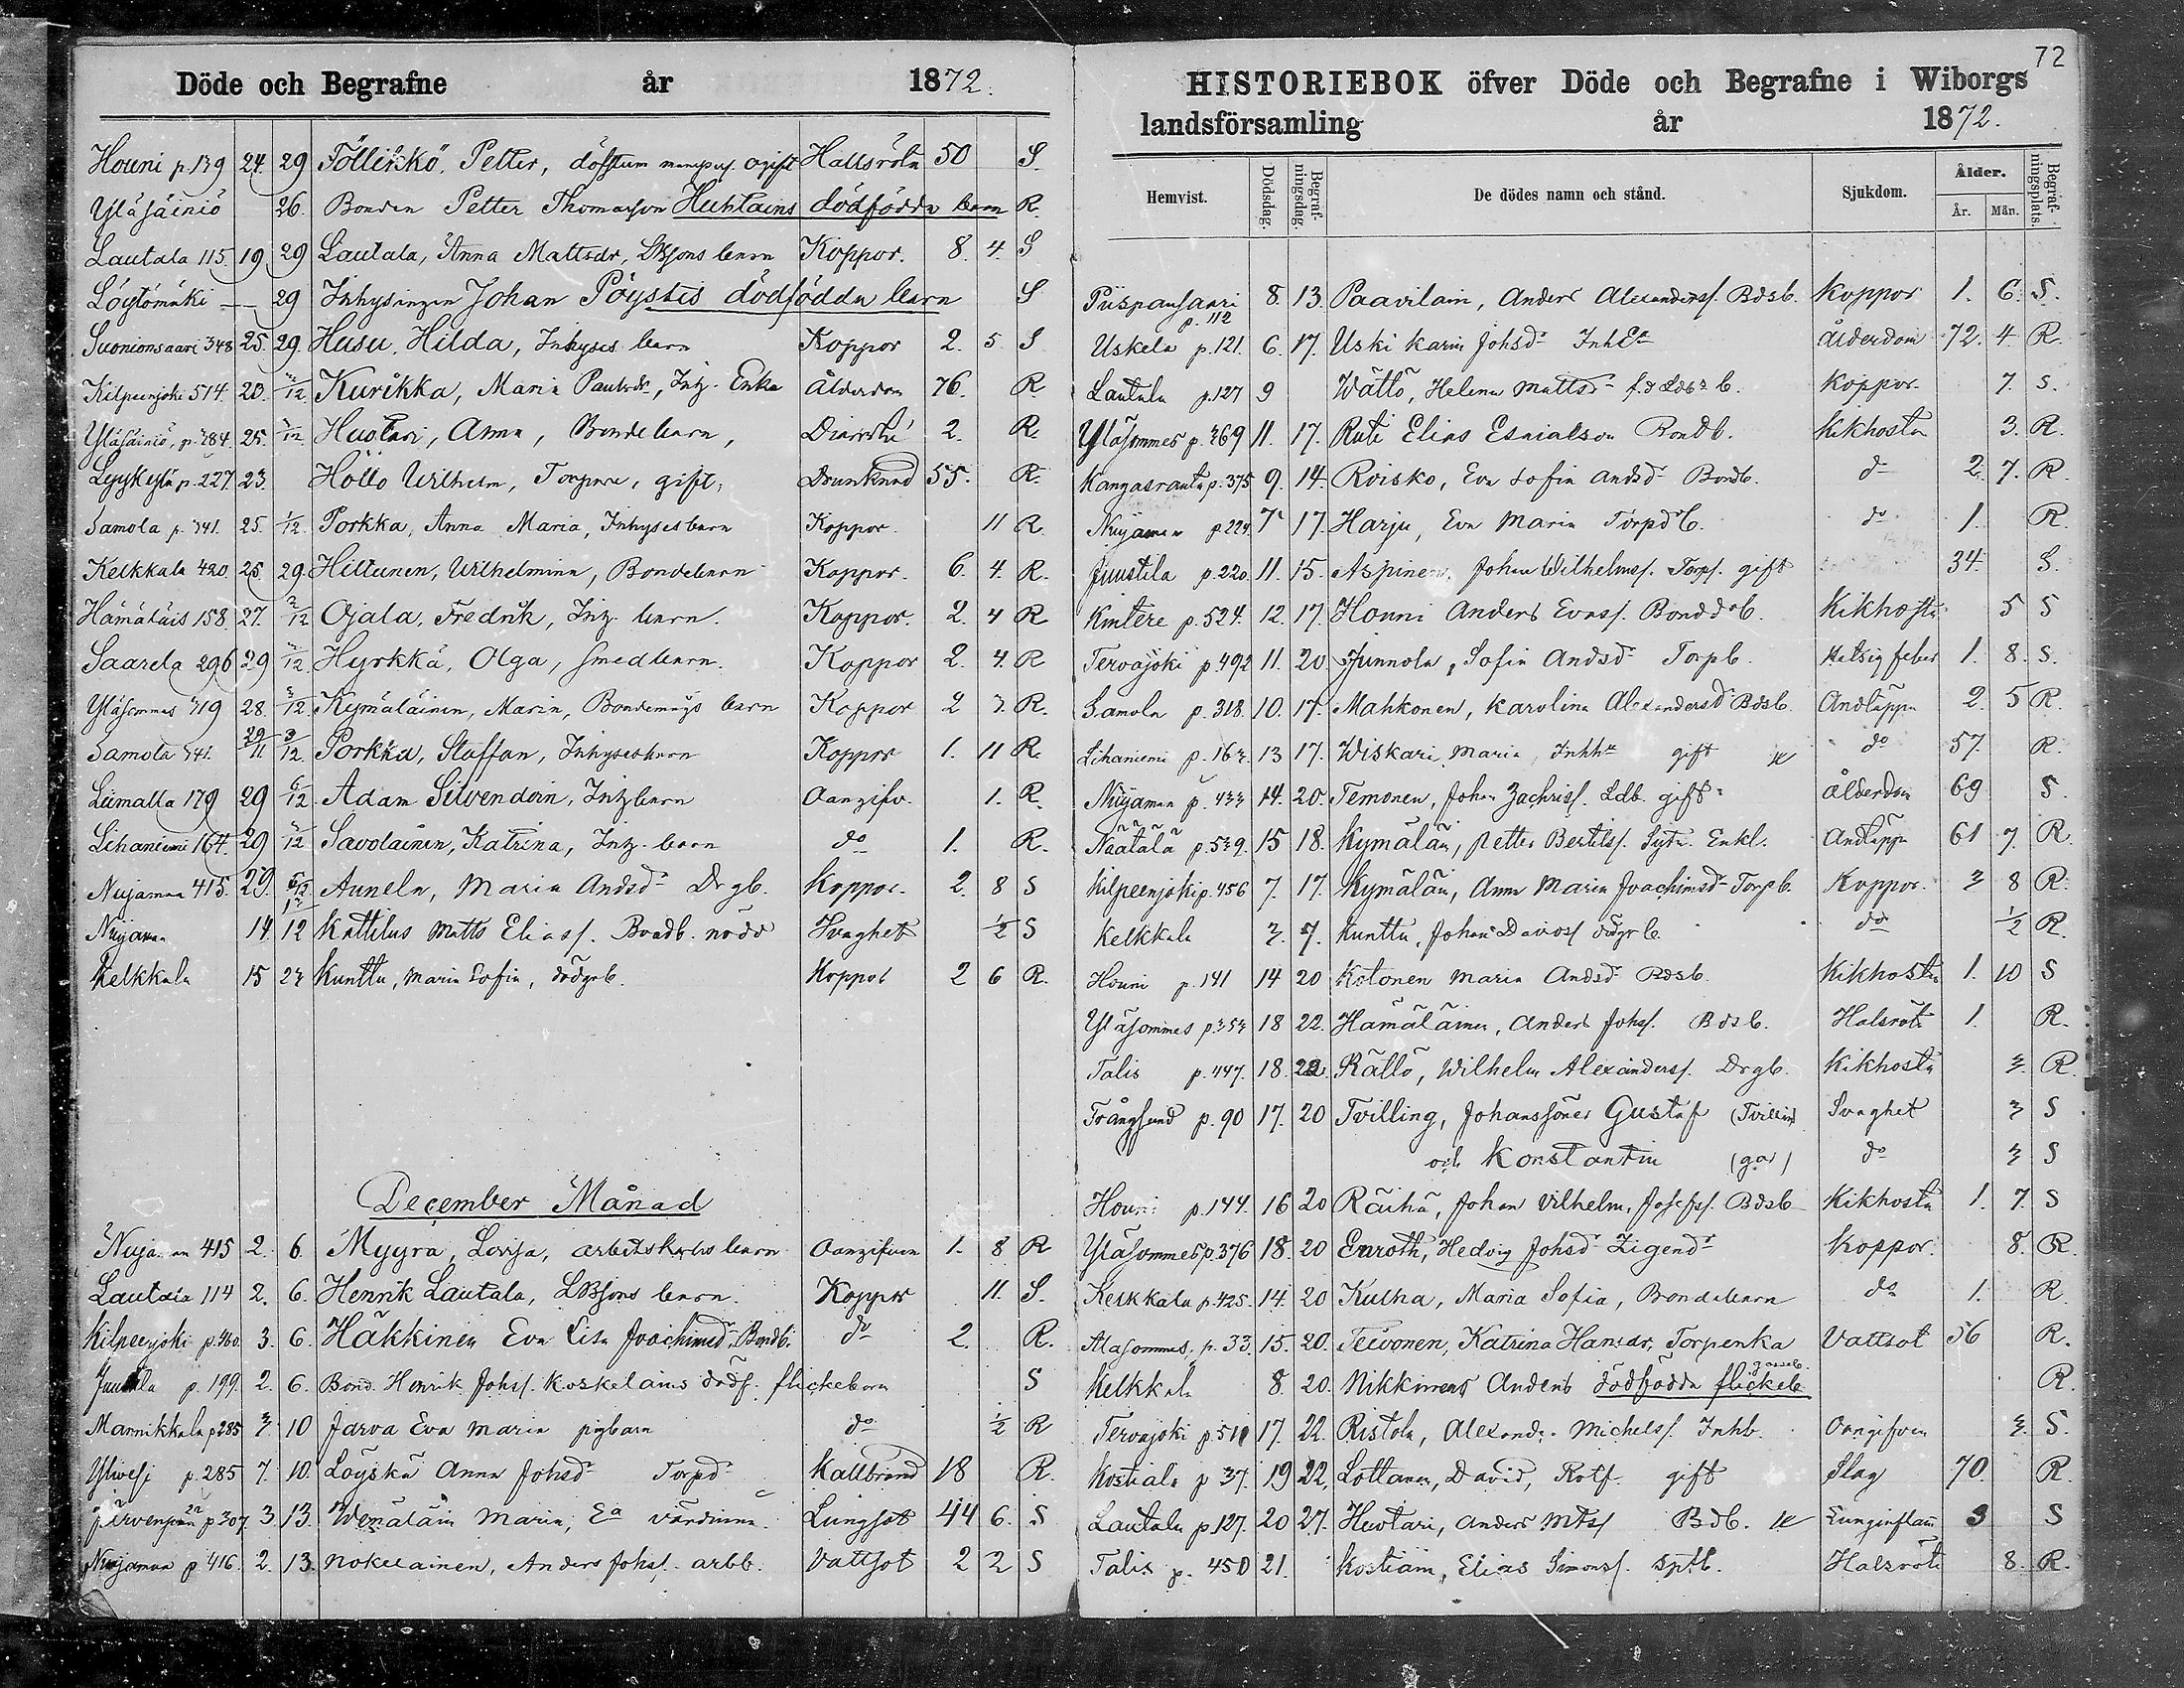 Döde och Begrafne år 1872.
Houni p.139 24. 29 Föllinkö, Petter, ogift Halsröta 50 S.
Yläsäiniö 26. Bonden Petter Thomasson Huhtains dödfödda barn R.
Lautala 115. 19 29 Lautala, Anna Mattsdr, barn Koppor. 8. 4. S
Löytömäki — 29 Inhysingen Johan Pöystis dödfödda barn S
Suonionsaari 348 25. 29. Husu, Hilda, Inhyses barn Koppor 2. 5 S
Kilpeenjoki 514. 20. /12. Kurikka, Maria Paulsdr, Inh. Enka Ålderdom 76. R
Yläsäiniö, p. 284. 25. /12 Huotari, Anna, Bondebarn, Diarrhé 2. R.
p. 227. 23. Höllö Wilhelm, Torpare, gift, Drunknad 55. R.
Samola p. 341. 25. 1/12 Porkka, Anna Maria, Inhysesbarn Koppor. 11 R.
Kelkkala 420. 25. 29. Hiltunen, Wilhelmina, Bondebarn Koppor. 6. 4. R.
Hämäläis 158. 27. 2/12 Ojala, Fredrik, Inh. barn. Koppor. 2. 4 R
Saarela 296 29 /12. Hyrkkä, Olga, Smedbarn. Koppor 2. 4. R
Yläsommes 319 28. 3/12. Kymäläinen, Maria, Bondemågs barn Koppor 2 3. R.
Samola 341. 29/11. 3/12. Porkka, Staffan, Inhysesbarn Koppor 1. 11 R.
Liimatta 179 29 6/12. Adam Silvendoin, Inhbarn Oangifv. 1. R.
Lihaniemi 164. 29 /12 Savolainen, Katrina, Inh. barn do 1. R.
Nuijamaa 415. 29. 5/12 Aunela, Maria Andsdr Drgb. Koppor. 2. 8 S
Nuijamaa 14. 12 Kattilus Matts Eliass. Bondb. nöddö Svaghet ½ S
Kelkkala 15 23 Kunttu, Maria Sofia, Koppor 2 6 R.
December Månad
Nuijamaa 415 2. 6. Myyrä, Lovisa, arbetskarls barn Oangifven 1. 8 R
Lautala 114 2. 6. Henrik Lautala, barn. Koppor 11. S.
Kilpeenjoki p. 460. 3. 6. Häkkinen Eva Lisa Joachimsdr Bondb. do 2. R.
Juustila p. 199. 2. 6. Bond. Henrik Johss. Koskelains dödf. flickebarn S
Mannikkala p 285 3. 10 Jarva Eva Maria pigbarn do ½ R
Ylivesi p. 285 7. 10. Löyskä Anna Johsdr Torpdr Kallbrand 18 R.
Järvenpää p 307. 3. 13. Wenäläin Maria, Ea värdinna. Lungsot 44 6. S
Nuijamaa p. 416. 2. 13. Nokelainen, Anders Johss. arbb. Vattsot 2 2 S
72
HISTORIEBOK öfver Döde och Begrafne i Wiborgs
landsförsamling år 1872.
Hemvist. Dödsdag. Begrafningsdag. De dödes namn och stånd. Sjukdom. Ålder. År. Mån. Begrafningsplats.
Piispansaari p. 112 8. 13. Paavilain, Anders Alexanderss. Bdsb. Koppor 1. 6. S.
Uskela p. 121. 6. 17. Uski Karin Johsdr InhEa ålderdom 72. 4 R.
Lautala p. 127 9 Wättö, Helena Mattsdr b. Koppor. 7. S.
Yläsommes p. 369 11. 17. Ruti Elias Esaiasson Bondb. Kikhosta 3. R.
Kangasranta p. 375 9. 14. Roisko, Eva Sofia Andsdr Bondb. do 2. 7. R.
Nuijamaa p 224. 7 17. Harju, Eva Maria Torpdrb. do 1. R.
Juustila p. 220. 11. 15. Aspinen, Johan Wilhelms. Torps. gift 34. S.
Kintere p. 524. 12. 17. Houni Anders Evass. Bonddrb. Kikhosta 5 S
Tervajoki p. 492 11. 20 Junnola, Sofia Andsdr Torpb. Hetsig feber 1. 8. S.
Samola p. 318. 10. 17. Mahkonen, Karolina Alexandersdr Bdsb. Andtäppa 2. 5 R.
Lihaniemi p. 163. 13 17. Wiskari, Maria, Inhh gift do 57. R.
Nuijamaa p. 433 14. 20. Temonen, Johan Zachriss. Ldb. gift ålderdom 69 S.
Näätälä p. 539. 15 18. Kymäläin, Petter Bertilss. Sytn. Enkl. Andtäppa 61 7. R.
Kilpeenjoki p. 456 7. 17. Kymäläin, Anna Maria Joachimsdr Torpb. Koppor. 3 8 R.
Kelkkala 3. 7. Kunttu, Johan Davids. do ½ R.
Houni p. 141 14 20 Kotonen Maria Andsdr Bdsb. Kikhosta 1. 10 S
Yläsommes p. 353 18 22. Hämäläinen, Anders Johss. Bdsb. Halsröta 1. R.
Talis p. 447. 18. 22. Rällö, Wilhelm Alexanderss. Drgb. Kikhosta 3. R.
Trångsund p. 90 17. 20 Tvilling, Johanssöner Gustaf (Tvillin Svaghet 3 S
och Konstantin (gar) do 3 S
Houni p. 144. 16 20 Räihä, Johan Vilhelm, Josefss. Bdsb Kikhosta 1. 7. S
Yläsommes p. 376 18. 20 Enroth, Hedvig Johsdr Zigendr Koppor. 8. R.
Kelkkala p. 425. 14. 20 Kulha, Maria Sofia, Bondebarn do 1. R
Alasommes, p. 33. 15. 20. Teivonen, Katrina Hansdr, Torpenka Vattsot 56 R.
Kelkkala 8. 20. Nikkinens Anders dödfödda flickeb R.
Tervajoki p. 510 17. 22. Ristola, Alexander Michelss. Inhb. Oangifven 3. S.
Kostiala p 37. 19 22. Lottanen, David, Rotf. gift Slag 70. R.
Lautala p. 127. 20 27. Huotari, Anders Mtss Bdb. Lunginflam 3 S
Talis p. 450 21. Kostiain, Elias Simonss. Sptb. Halsröta 8. R.